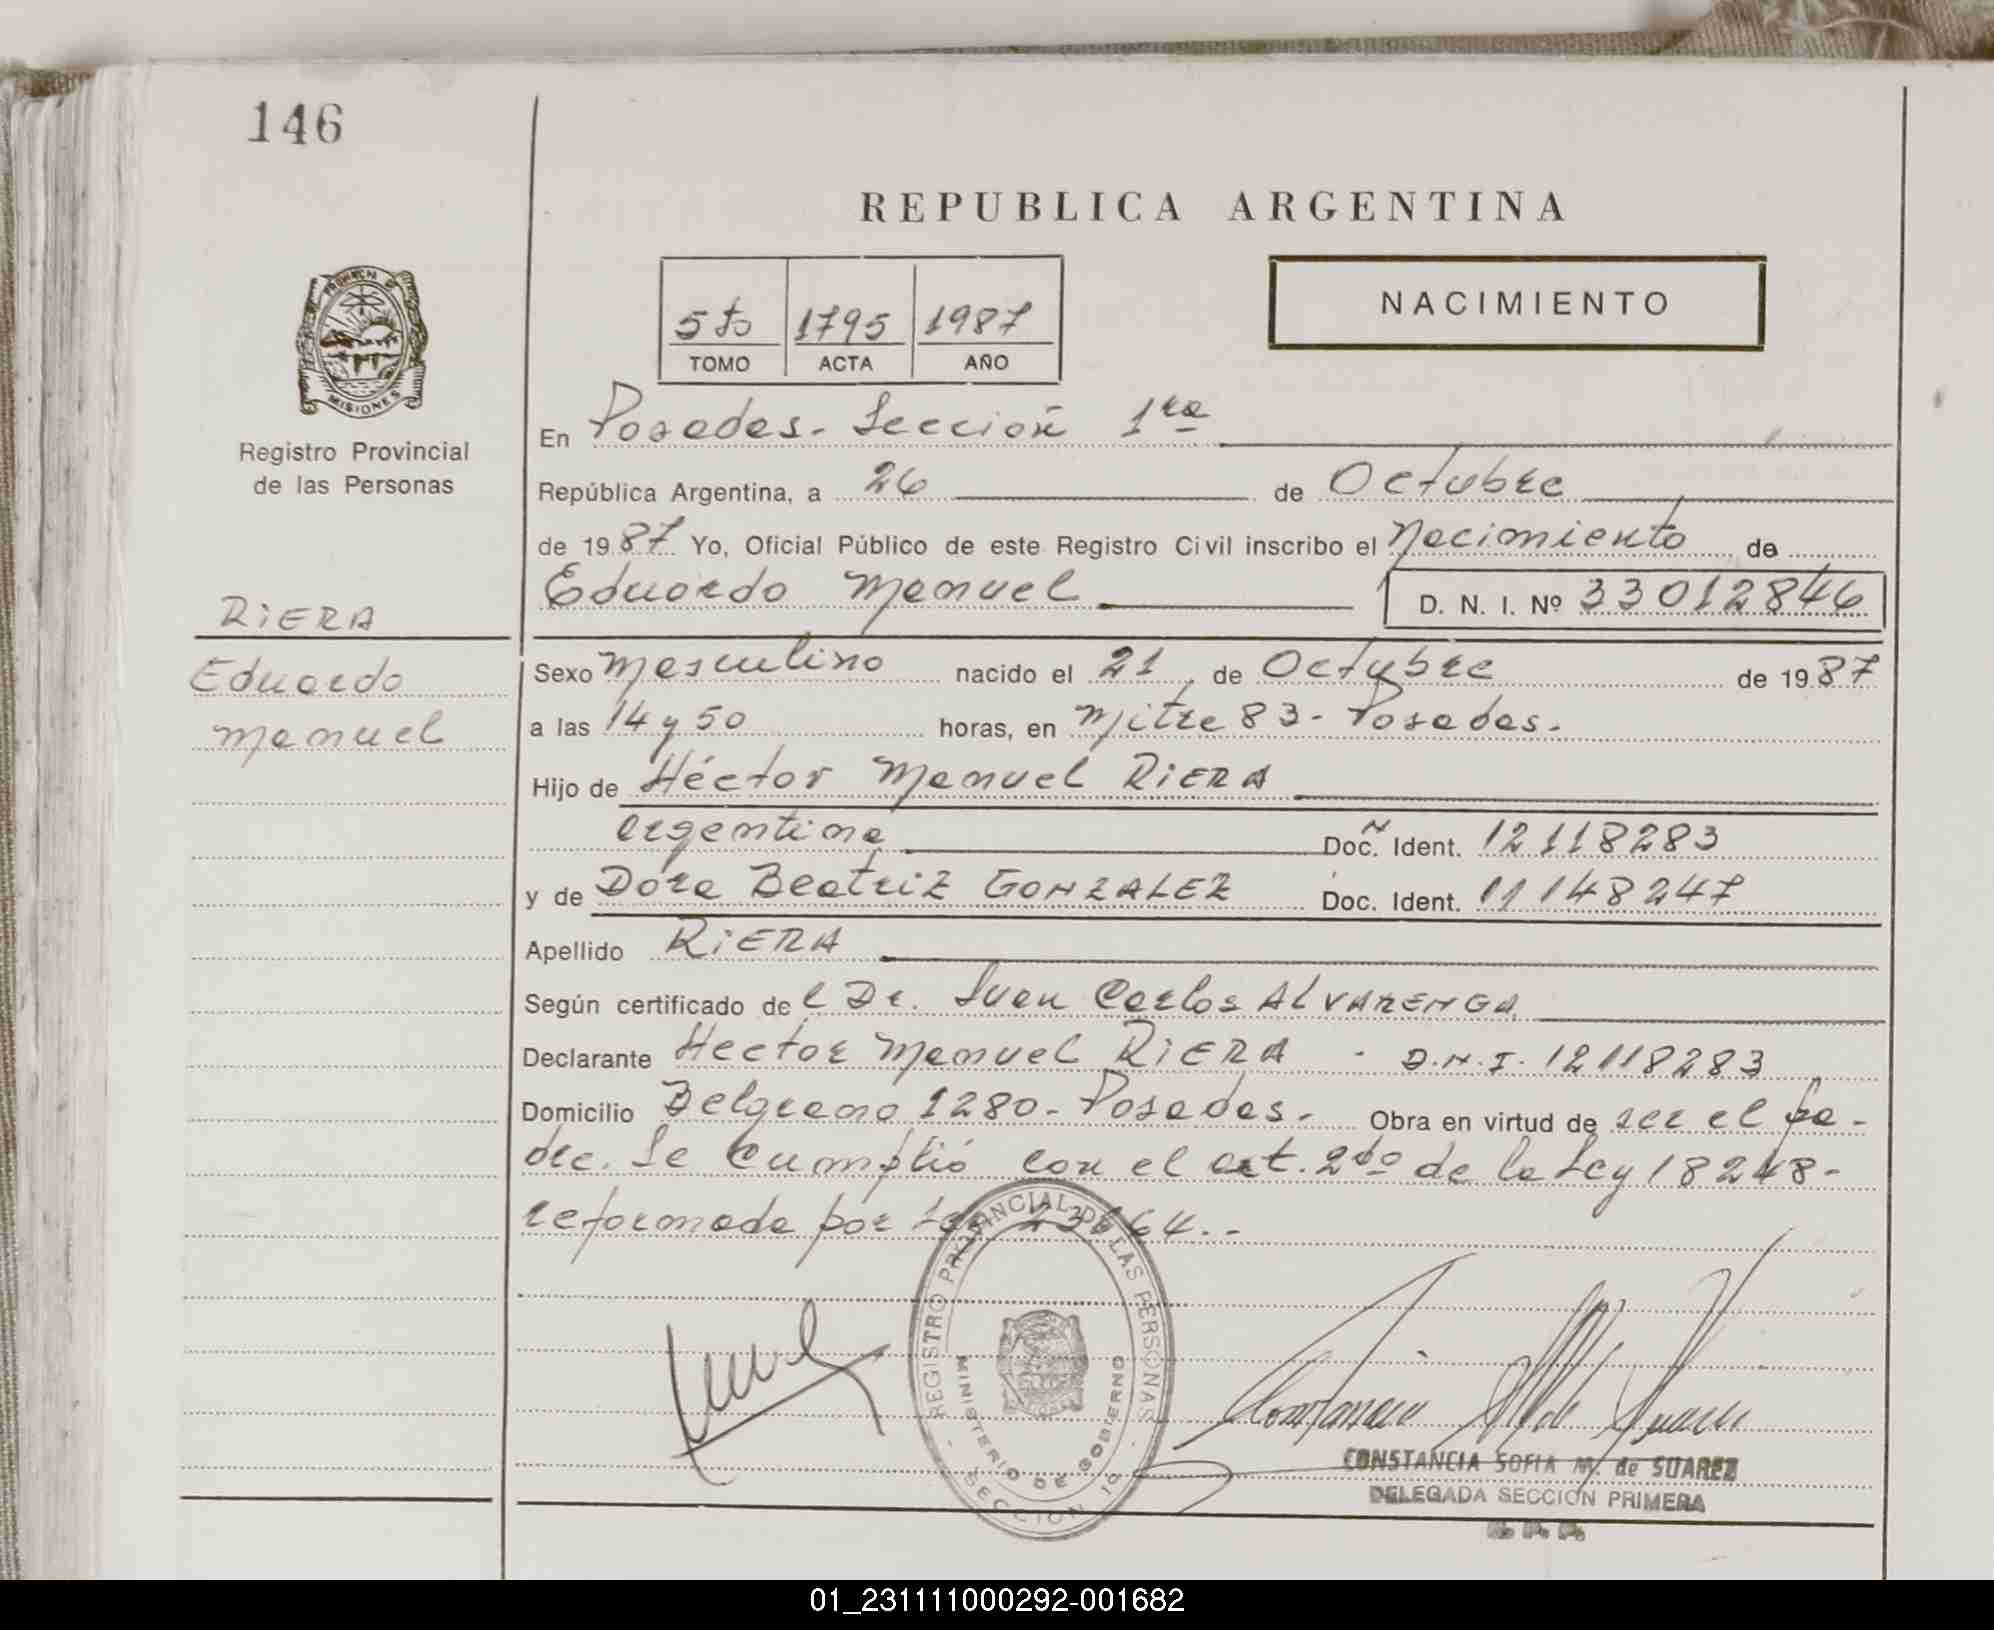 146
REPUBLICA ARGENTINA
5to 1795 1987
TOMO ACTA AÑO
NACIMIENTO
PROVINCIA DE
MISIONES
Registro Provincial
de las Personas
RiERA
Eduardo
Manuel
En Posadas. Sección 1ra
República Argentina, a 26 de Octubre
de 1987 Yo, Oficial Público de este Registro Civil inscribo el Nacimiento de
Eduardo Manuel D. N. I. Nº 33012846
Sexo Masculino nacido el 21 de Octubre de 1987
a las 14 y 50 horas, en Mitre 83 - Posadas.
Hijo de Héctor Manuel RiERA
argentina Doc. Ident. 12118283
y de Dora Beatriz GONZALEZ Doc. Ident. 11148247
Apellido RiERA
Según certificado del Dr. Juan Carlos ALVARENGA
Declarante Hector Manuel RiERA - D.N.I. 12118283
Domicilio Belgrano 1280 - Posadas. Obra en virtud de ser el pa-
dre. Se cumplió con el art. 2do de la Ley 18248-
reformada por Ley 64..-
REGISTRO PROVINCIAL DE LAS PERSONAS
MINISTERIO DE GOBIERNO
- SECCION 1º -
CONSTANCIA SOFIA M. de SUAREZ
DELEGADA SECCION PRIMERA
01_231111000292-001682